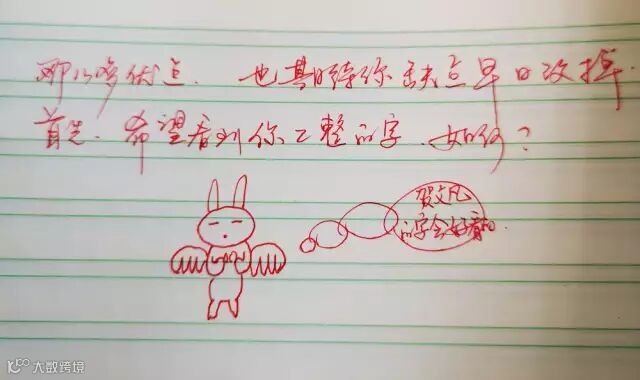 那么多优点. 也期待你缺点早日改掉.
首先. 希望看到你工整的字. 如何?
贺文凡
的字会好看的.
大数跨境